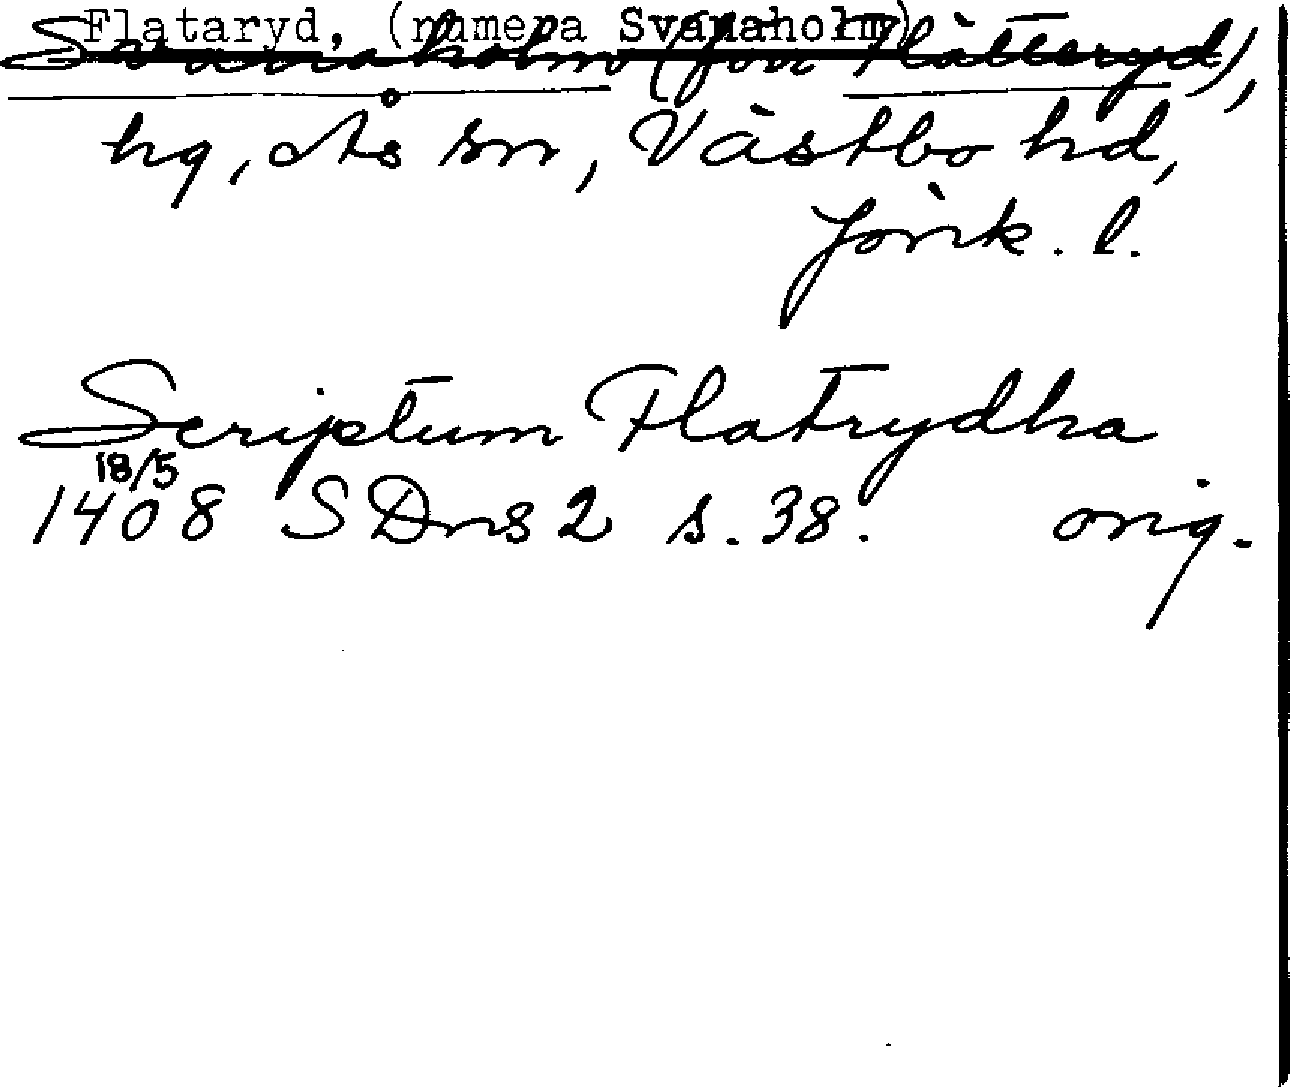 Flataryd, (numera Svanaholm)
Svanaholm (förr Flatteryd),
hg, Ås sn, Västbo hd,
Jönk. l.
Scriptum Flatrydha
18/5
1408 SDns 2 s. 38. orig.